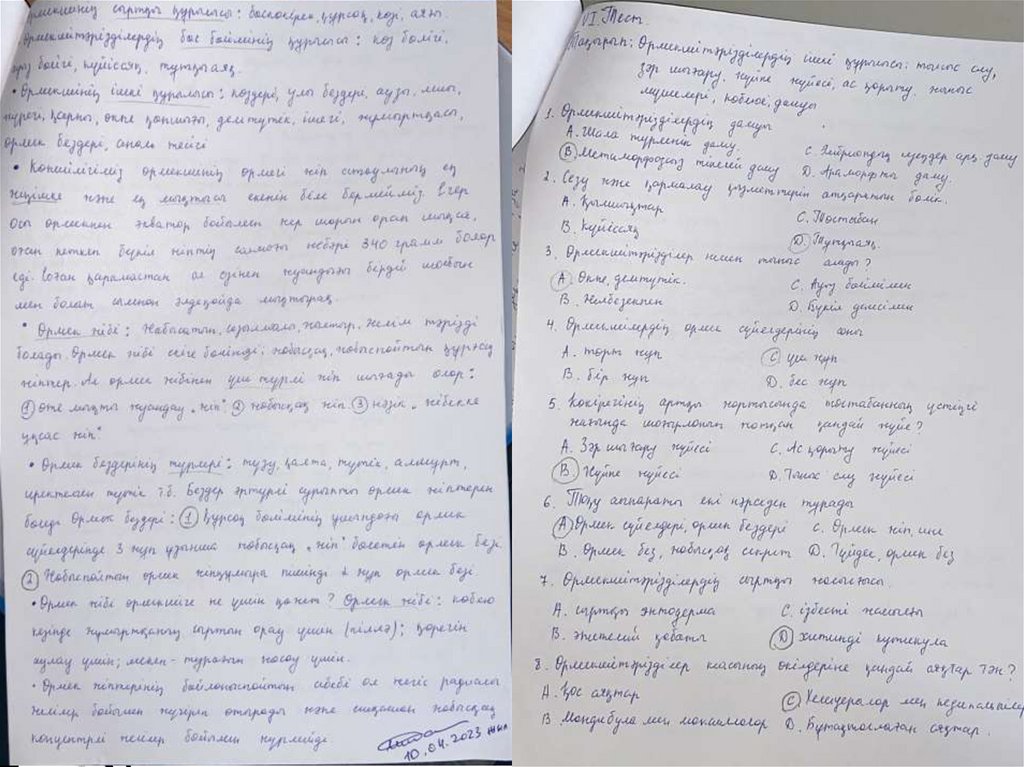 Өрмекшінің сыртқы құрылысы: баскөкірек, құрсақ, көзі, аяғы.
Өрмекшітәрізділердің бас бөлімінің құрылысы: көз бөлігі,
ауыз бөлігі, күйіссяқ, тұтқыаяқ.
• Өрмекшінің ішкі құрылысы: көздері, улы бездері, аузы, миы,
жүрегі, қарны, өкпе қапшығы, демтүтек, ішегі, жұмыртқасы,
өрмек бездері, аналь тесігі
• Көпшілігіміз өрмекшінің өрмегі жіп атаулының ең
жіңішке және ең мықтысы екенін біле бермейміз. Егер
осы өрмекпен экватор бойымен жер шарын орап шықса,
оған кеткен бүкіл жіптің салмағы небәрі 340 грамм болар
еді. Соған қарамастан ол өзінен жуандығы бірдей
мен болат сымнан әлдеқайда мықтырақ.
• Өрмек жібі: Жабысқақ, созылмалы, жылтыр, желім тәрізді
болады. Өрмек жібі екіге бөлінеді: жабысқақ, жабыспайтын құрғақ
жіптер. Ал өрмек жібінен үш түрлі жіп шығады олар:
① өте мықты жуандау „жіп" ② жабысқақ жіп ③ нәзік „жібекке
ұқсас жіп"
• Өрмек бездерінің түрлері: түзу, қалта, түтік, алмұрт,
иректелген түтік т.б. Бездер әртүрлі сұрыпты өрмек жіптерін
бөледі. Өрмек бездері: ① Құрсақ бөлімінің ұшындағы өрмек
сүйелдерінде 3 жұп ұзынша жабысқақ „жіп" бөлетін өрмек безі
② Жабыспайтын өрмек жіп шумира пішінді 2 жұп өрмек безі.
• Өрмек жібі өрмекшіге не үшін қажет? Өрмек жібі: көбею
кезінде жұмыртқаның сыртын орау үшін (пілла); қорегін
аулау үшін; мекен-тұрағын жасау үшін.
• Өрмек жіптерінің байланыспайтын себебі ол негізгі радиалы
желілер бойымен жүгіріп отырады және ешқашан жабысқақ
концентрлі желілер бойымен жүрмейді.
10.04.2023 жыл
VI. Тест.
Тақырып: Өрмекшітәрізділердің ішкі құрылысы: тыныс алу,
зәр шығару, жүйке жүйесі, ас қорыту, жыныс
мүшелері, көбеюі, дамуы
1. Өрмекшітәрізділердің дамуы
А. Шала түрленіп даму.
С. Эмбриондық кезеңдер арқ даму
В Метаморфозсыз тікелей даму
D. Араморфты даму.
2. Сезу және қармалау қызметтерін атқаратын бөлік.
А. Қысқыштар
С. Тостабан
В. Күйіссяқ
D. Тұтқыаяқ.
3. Өрмекшітәрізділер немен тыныс алады?
А. Өкпе, демтүтік.
С. Ауыз бөлімімен
В. Желбезекпен
D. Бүкіл денесімен
4. Өрмекшілердің өрмек сүйелдерінің саны
А. төрт жұп
С үш жұп
В. бір жұп
D. бес жұп
5. Көкірегінің артқы жартысында тостабанның үстіңгі
жағында шоғырланып жатқан қандай жүйе?
А. Зәр шығару жүйесі
С. Ас қорыту жүйесі
В. Жүйке жүйесі
D. Тыныс алу жүйесі
6. Тоқу аппараты екі нәрседен тұрады
А Өрмек сүйелдері, өрмек бездері
С. Өрмек жіп, ине
В. Өрмек без, жабысқақ секрет
D. Түйдек, өрмек без
7. Өрмекшітәрізділердің сыртқы жасушасы.
А. сыртқы энтодерма
С. ізбесті жасығы
В. эпителий қабаты
D хитинді кутикула
8. Өрмекшітәрізділер класының өкілдеріне қандай аяқтар тән?
А. Қос аяқтар
С Хелицералар мен педипальпілер
В Мандибула мен максиллалар
D. Бұтақталған аяқтар.